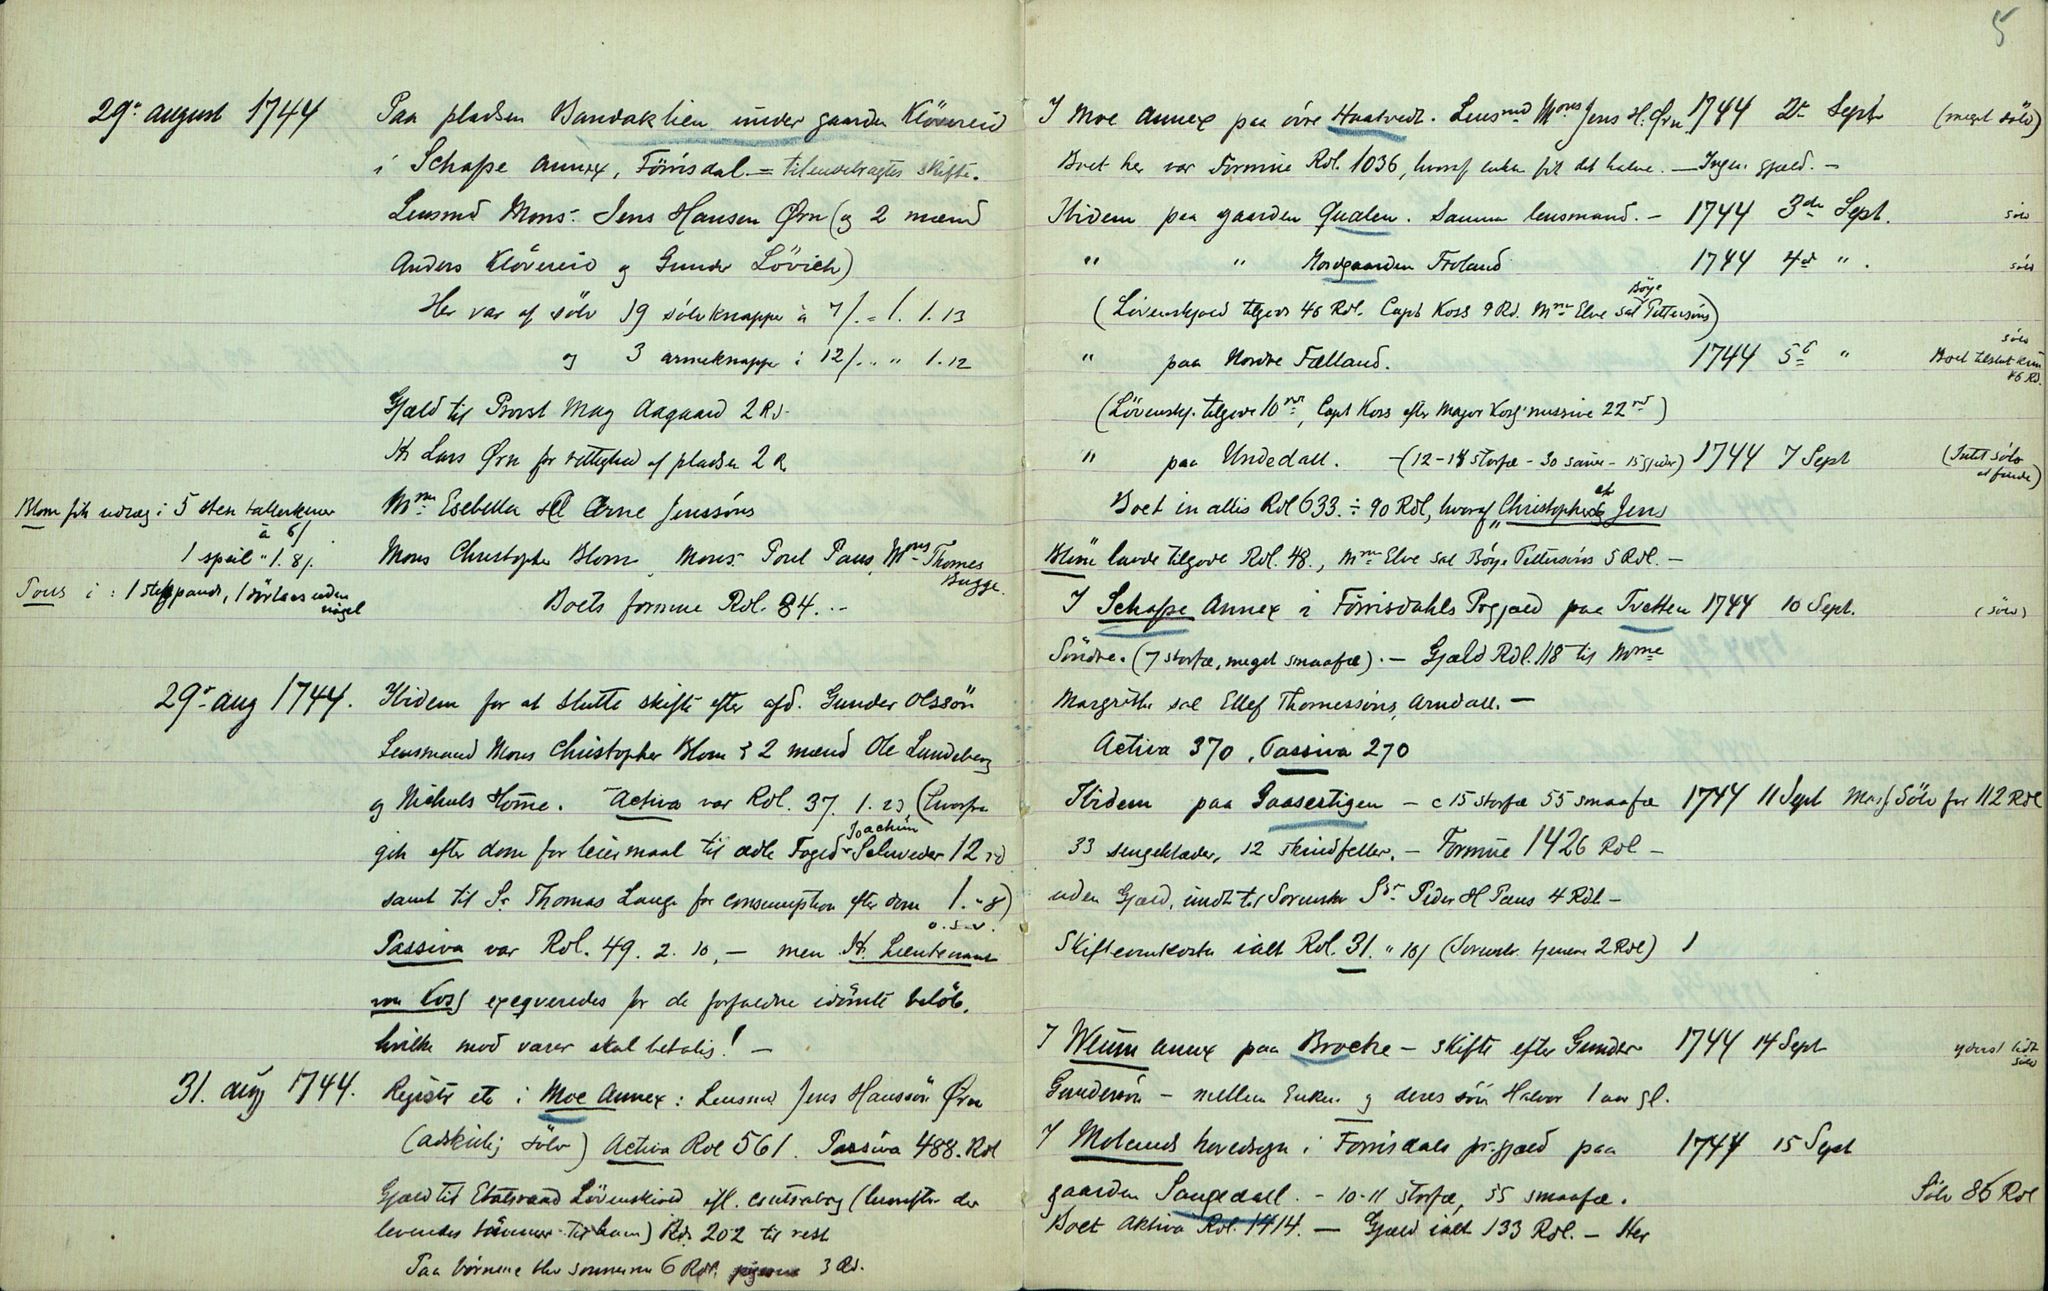 5
29de august 1744 Paa pladsen Bandaklien under gaarden Klövereid
i Schafse Annex, Förrisdal = tilendebragtes skifte.
Lensmd Mons. Jens Hansen Ørn (og 2 mænd
Anders Klövereid og Gunder Lövich)
Her var af sölv 19 sölvknapper à 7/. = 1. 1. 13
og 3 armeknapper i 12/. .. " 1. 12
Gjæld til Provst Mag Aagaard 2 Rd.
Hr Lars Ørn for rettighed af pladsen 2 R
Blom fik udlæg i 5 sten tallerkener Mme Esebella sl Arne Jenssöns
à 6/
1 speil " 1. 8/. Mons Christopher Blom, Mons. Povl Paus, Mons Thomes
Bugge.
Paus i : 1 stegpande, 1 dörlaas uden
nögel
Boets formue Rdl. 84. --
29de aug 1744. Ibidem for at slutte skifte efter afd. Gunder Olssön
Lensmand Mons Christopher Blom & 2 mænd Ole Lundeberg
og Nichuls Home. Activa var Rdl. 37. 1. 23 (hvorfra
gik efter dom for leiermaal til ædle Foged Joachim Schweder 12 rd
samt til Sr Thomas Lange for consumption efter dom 1. " 8)
o.s.v.
Passiva var Rdl. 49. 2. 10, — men Hr. Lieutenant
von Koss exeqveredes for de forfaldne idömte belöb,
hvilke med varer skal betales! —
31. aug 1744. Registr etc i Moe Annex: Lensmd Jens Hanssön Ørn
(adskielig sölv) Activa Rdl 561. Passiva 488. Rdl
Gjæld til Etatsraad Lövenskiold ifl. contrabog (hvorefter der
leveredes tömmer til ham) Rd. 202 til rest
Paa börnene blev sönnerne 6 Rdl. pigerne 3 Rd.
I Moe Annex paa övre Haatvedt. Lensmd Mons Jens H. Ørn 1744 2de Septr (meget sölv)
Boet her var Formue Rdl. 1036, hvoraf enken fik det halve. — Ingen gjæld. —
Ibidem paa gaarden Qualen. Samme lensmand. — 1744 3de Sept. sölv
" " Nordgaarden Froland 1744 4de " . sölv
(Lövenskjold tilgode 46 Rdl. Capt Koss 9 Rd. Mme Elve sal Böye Pettersöns)
" paa Nordre Fælland. 1744 5te " sölv
Boet tilslut kun
46 Rd.
(Lövenskj. tilgode 10 rd, Capt Koss efter Major Koss' missive 22 rd)
" paa Undedall. — (12-14 storfæ - 30 sauer - 15 gjeder) 1744 7 Sept (Intet sölv
at finde)
Boet in alles Rdl 633. ÷ 90 Rdl, hvoraf „Christopher og Jens
Blom havde tilgode Rdl. 48., Mme Elve Sal Böye Pettersöns 5 Rdl. —
I Schafse Annex i Förrisdahls Prgjæld paa Tvetten 1744 10 Sept. (sölv)
Söndre. (7 storfæ, meget smaafæ). — Gjæld Rdl. 118 til Mme
Margrethe sal Ellef Thomessöns, Arndall. —
Activa 370, Passiva 270
Ibidem paa Gaasestigen — c 15 storfæ 55 smaafæ 1744 11 Sept Mass Sölv for 112 Rdl
33 sengeklæder, 12 skindfeller. — Formue 1426 Rdl —
uden Gjæld, undt. til Sorenskr Sr Peder H Paus 4 Rdl —
Skifteomkoster ialt Rdl. 31. " 18/ (Sorenskr. tjenere 2 Rdl)
I Weum annex paa Brocke — skifte efter Gunder 1744 14 Sept yderst lidt
sölv
Gundersön — mellem Enken og deres sön Halvor 1 aar gl.
I Molands hovedsogn i Forrisdals pr.gjæld paa 1744 15 Sept
gaarden Saugedall. — 10-11 storfæ, 55 smaafæ. Sölv 86 Rdl
Boet Aktiva Rdl. 1414. — Gjæld ialt 133 Rdl. — Her